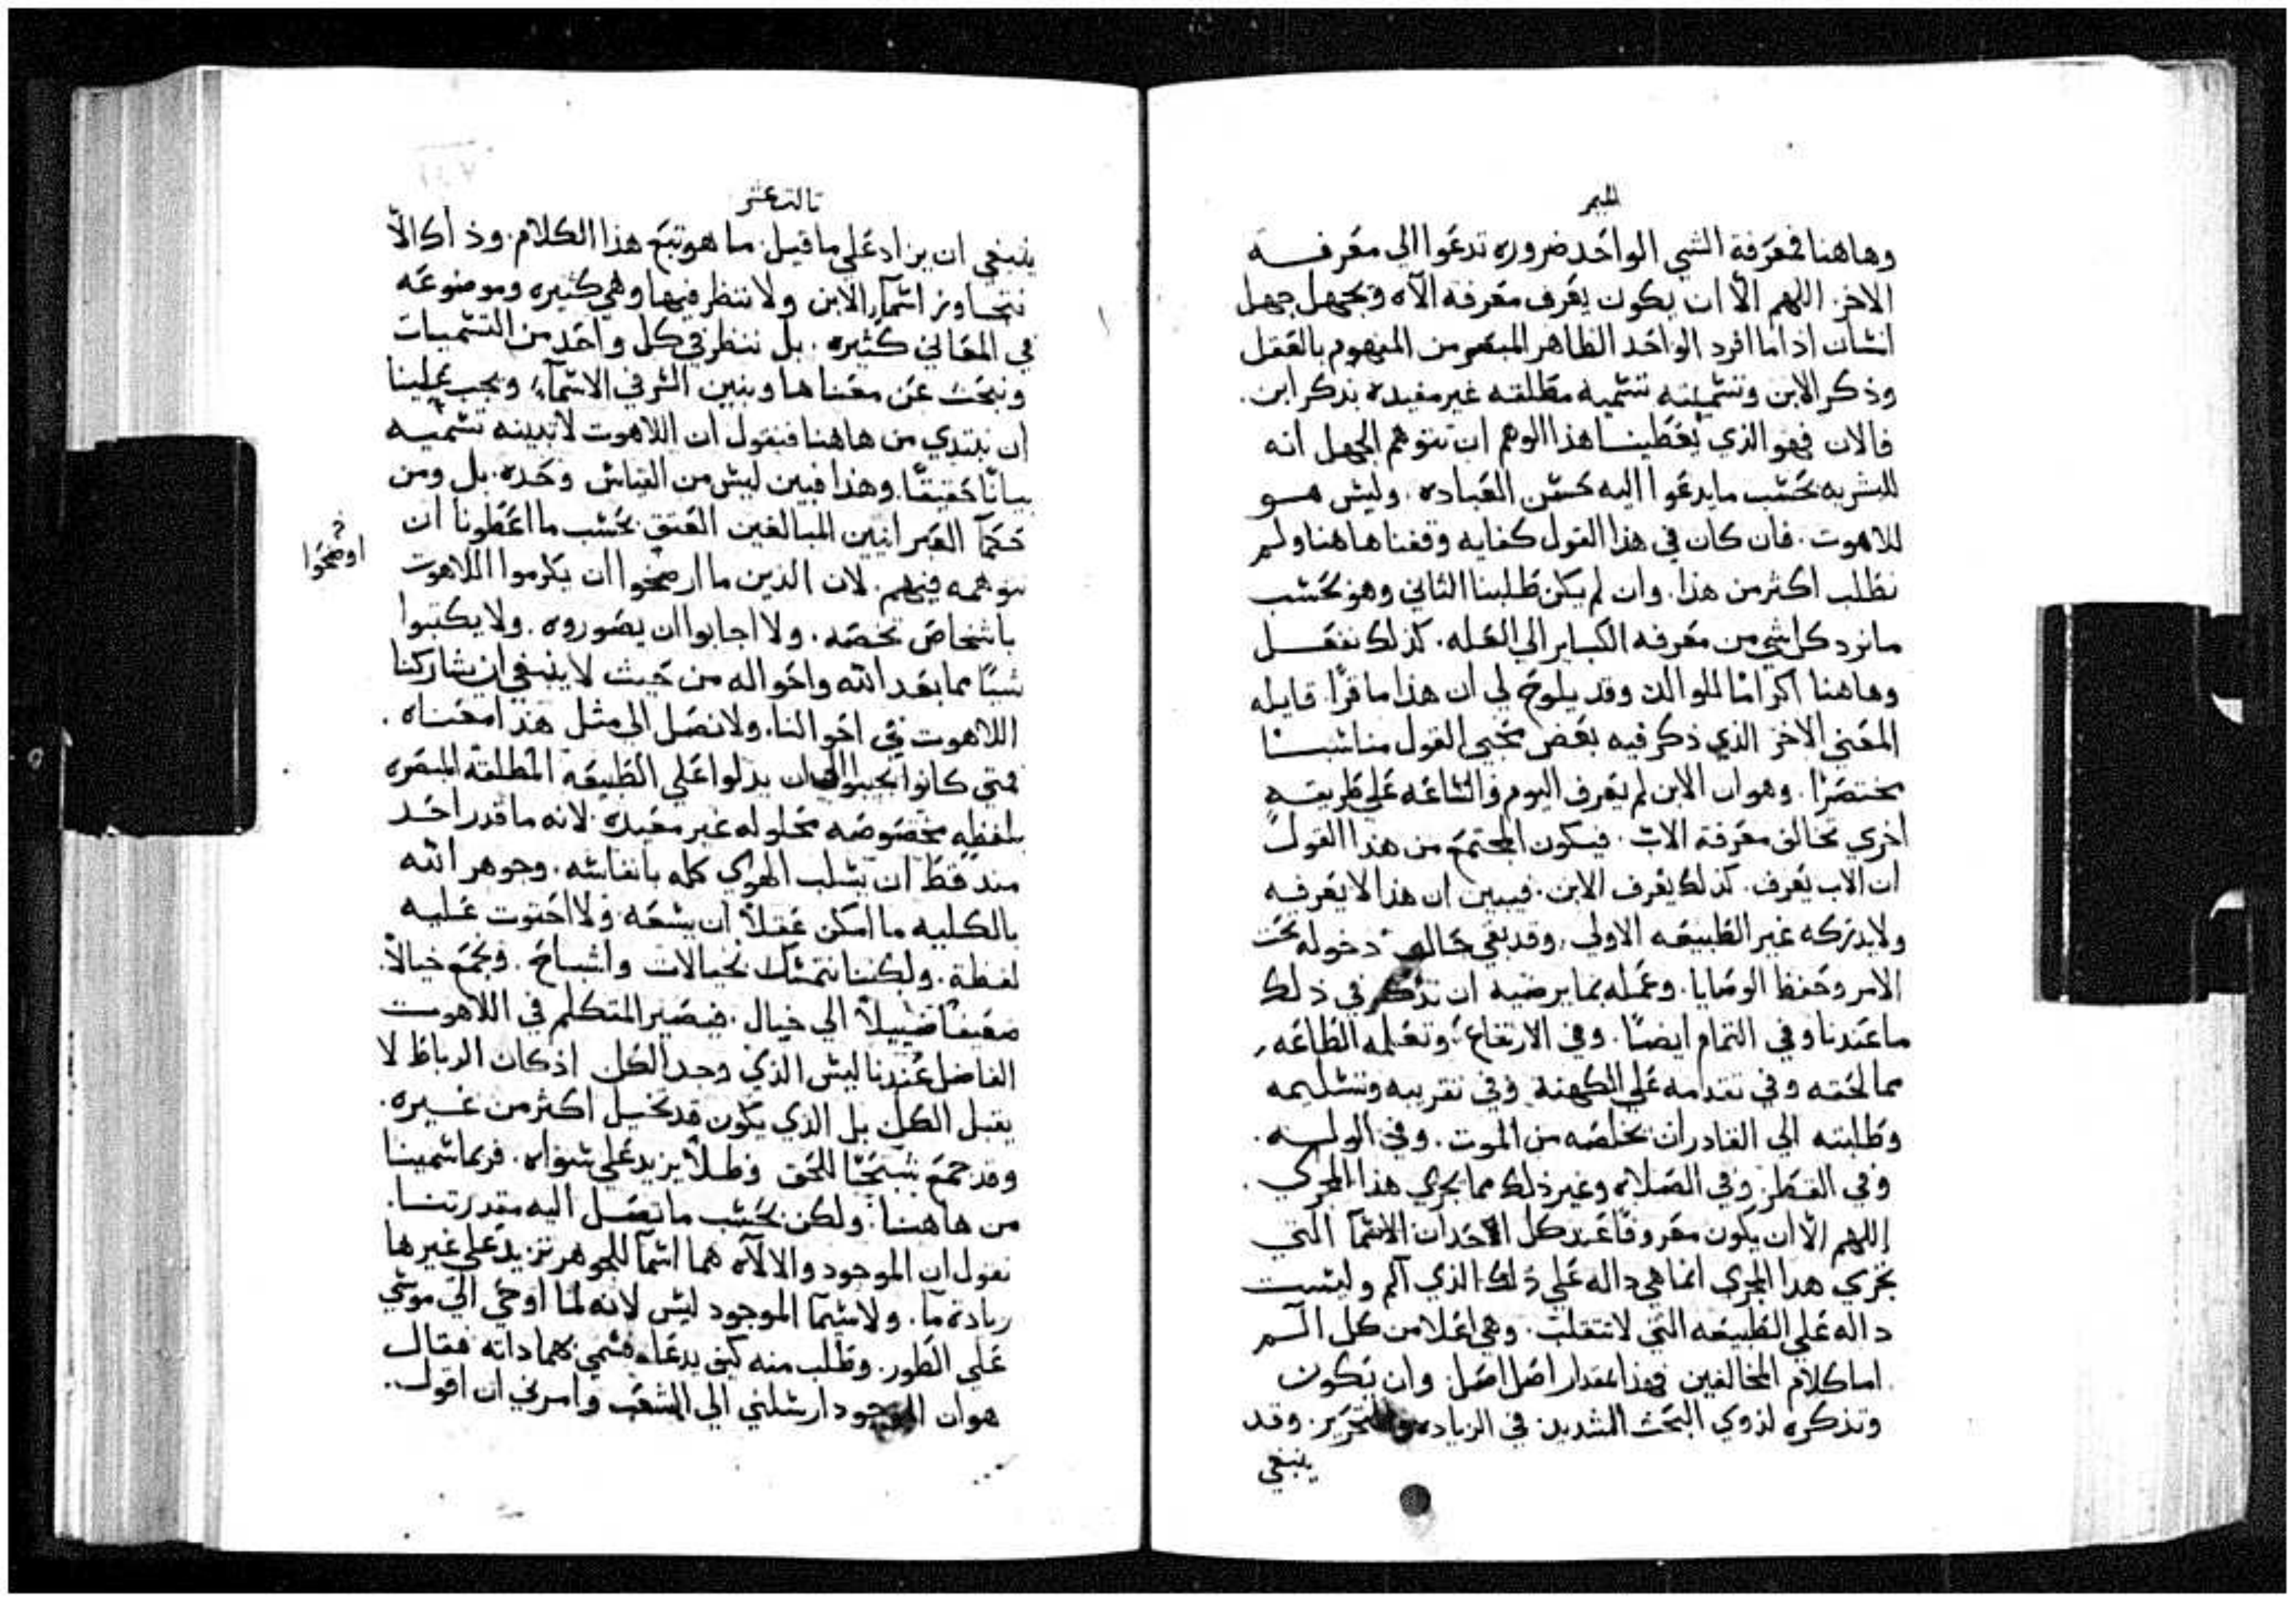 الميمر
وهاهنا فمعرفة الشي الواحد ضروره تدعوا الي معرفه
الاخر. اللهم الّا ان يكون يعرف معرفه الاه ويجهل جهل
انسان اذا ما افرد الواحد الظاهر المبصر من المفهوم بالعقل
وذكر الابن وتسميته تسميه مطلقه غير مفيده بذكر ابن.
فالان فهو الذي يعطينا هذا الوهم ان نتوهم الجهل انه
للبشريه بحسب ما يدعوا اليه حسن العباده. وليس هو
للاهوت. فان كان في هذا القول كفايه وقفنا هاهنا ولم
نطلب اكثر من هذا. وان لم يكن طلبنا الثاني وهو بحسب
ما نرد كل شي من معرفه الكباير الي العله. كذلك نفعل
وهاهنا اكرامًا للوالد. وقد يلوح لي ان هذا ما قرا قايله
المعني الاخر الذي ذكر فيه بعض محبي القول مناسبًا
مختصرًا. وهو ان الابن لم يعرف اليوم والساعه علي طريقه
اخري تخالف معرفة الاب. فيكون المجتمع من هذا القول
ان الاب يعرف. كذلك يعرف الابن. فيبين ان هذا لا يعرفه
ولا يدركه غير الطبيعه الاولي. وقد بقي دخوله تحت
الامر وحفظ الوصايا. وعمله بما يرضيه ان نذكر في ذلك
ما عندنا وفي التمام ايضًا. وفي الارتفاع. وتعلمه الطاعه
مما لحقه وفي تقدمه علي الكهنة وفي تقريبه وتسليمه
وطلبته الي القادر ان يخلصه من الموت. وفي الوله.
وفي القطر وفي الصلاه وغير ذلك مما يجري هذا المجري.
اللهم الّا ان يكون معروفًا عند كل الاحدان الاسمآ التي
تجري هذا المجري انما هي داله علي ذلك الذي آلم وليست
داله علي الطبيعه التي لا تنقلب. وهي اعلا من كل الم
اما كلام المخالفين فهذا مقدار اصل اصل وان يكون
وتذكره لذوي البحث الشديد في الزياده والتحرير. وقد
ينبغي
ثالث عشر
ينبغي ان يزاد علي ما قيل. ما هو تبع هذا الكلام. وذاك الّا
نتجاوز اسمآء الابن ولا ننظر فيها وهي كثيره وموضوعه
في المعاني كثيره. بل ننظر في كل واحد من التسميات
ونبحث عن معناها ونبين السر في الاسمآء. ويجب علينا
ان نبتدي من هاهنا فنقول ان اللاهوت لا تبينه تسميه
بيانًا حقيقًا. وهذا فبين ليس من القياس وحده. بل ومن
حكمآ العبرانيين المبالغين العتق بحسب ما اعطونا ان
نتوهمه فيهم. لان الذين ما ارضخوا ان يكرموا اللاهوت
اوضحوا
باشخاص تخصه. ولا اجابوا ان يصوروه. ولا يكتبوا
شيًا مما بعد الله واحواله من حيث لا ينبغي ان يشاركنا
اللاهوت في احوالنا. ولا نصل الي مثل هذا معناه.
فمتي كانوا يجيبوا ان يدلوا علي الطبيعه المطلقه المبصره
بلفظه مخصوصه محلوله غير مفيده. لانه ما قدر احد
منذ قط ان يسلب الهوي كله بانفاسه. وجوهر الله
بالكليه ما امكن عقلاً ان يسعه ولا احتوت عليه
لفظة. ولكننا نتمسك بخيالات واشباح. ونجمع خيالاً.
ضعيفًا ضييلاً الي خيال. فيصير المتكلم في اللاهوت
الفاضل عندنا ليس الذي وجد الكل اذ كان الرباط لا
يقبل الكل بل الذي يكون قد تخيل اكثر من غيره.
وقد جمع شبحًا للحق وظلاً يزيد علي سواه. فربما سمينا
من هاهنا. ولكن بحسب ما تصل اليه مقدرتنا.
نقول ان الموجود والالاه هما اسمآ للجوهر تزيد علي غيرها
زيادة ما. ولا سيما الموجود ليس لانه لما اوحي الي موسي
علي الطور. وطلب منه كيف يدعاه فسمي بهما ذاته فقال
هو ان الموجود ارسلني الي الشعب وامرني ان اقول.